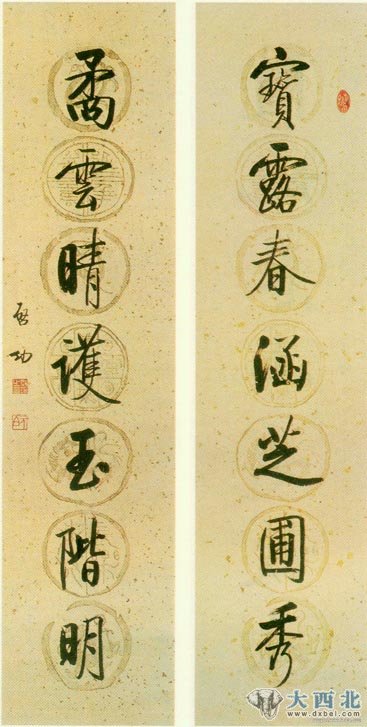 寶露春涵芝圃秀
矞雲晴護玉階明
啟功
大西北
www.dxbei.com